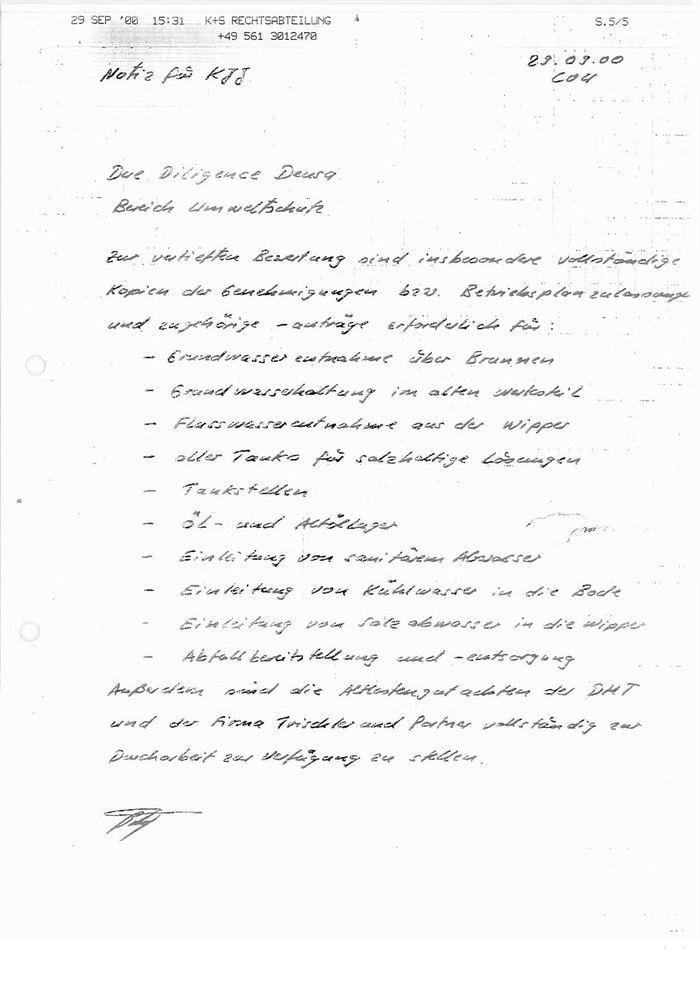 29 SEP '00 15:31 K+S RECHTSABTEILUNG S.5/5
+49 561 3012470
29.09.00
Notiz für KJJ
COU
Due Diligence Deusa
Bereich Umweltschutz
Zur vertieften Bewertung sind insbesondere vollständige
Kopien der Genehmigungen bzw. Betriebsplanzulassunge
und zugehörige -anträge erforderlich für:
- Grundwasserentnahme über Brunnen
- Grundwasserhaltung im alten Werksteil
- Flusswasserentnahme aus der Wipper
- aller Tanks für salzhaltige Lösungen
- Tankstellen
- Öl- und Altöllager
- Einleitung von sanitärem Abwasser
- Einleitung von Kühlwasser in die Bode
- Einleitung von Salzabwasser in die Wipper
- Abfallbereitstellung und -entsorgung
Außerdem sind die Altlastengutachten der DMT
und der Firma Trischler und Partner vollständig zur
Durcharbeit zur Verfügung zu stellen.